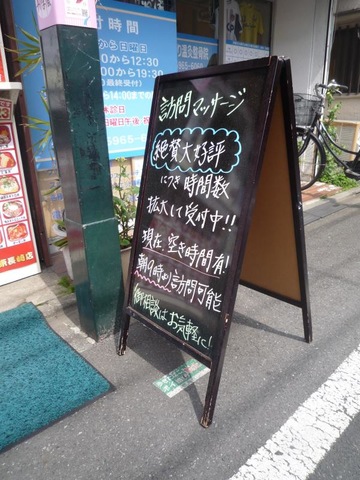 訪問マッサージ
絶賛大好評
につき時間数
拡大して受付中!!
現在空き時間有!
朝9時~訪問可能
御相談はお気軽に!
付時間
から日曜日
00から12:30
00から19:30
の温灸整骨院